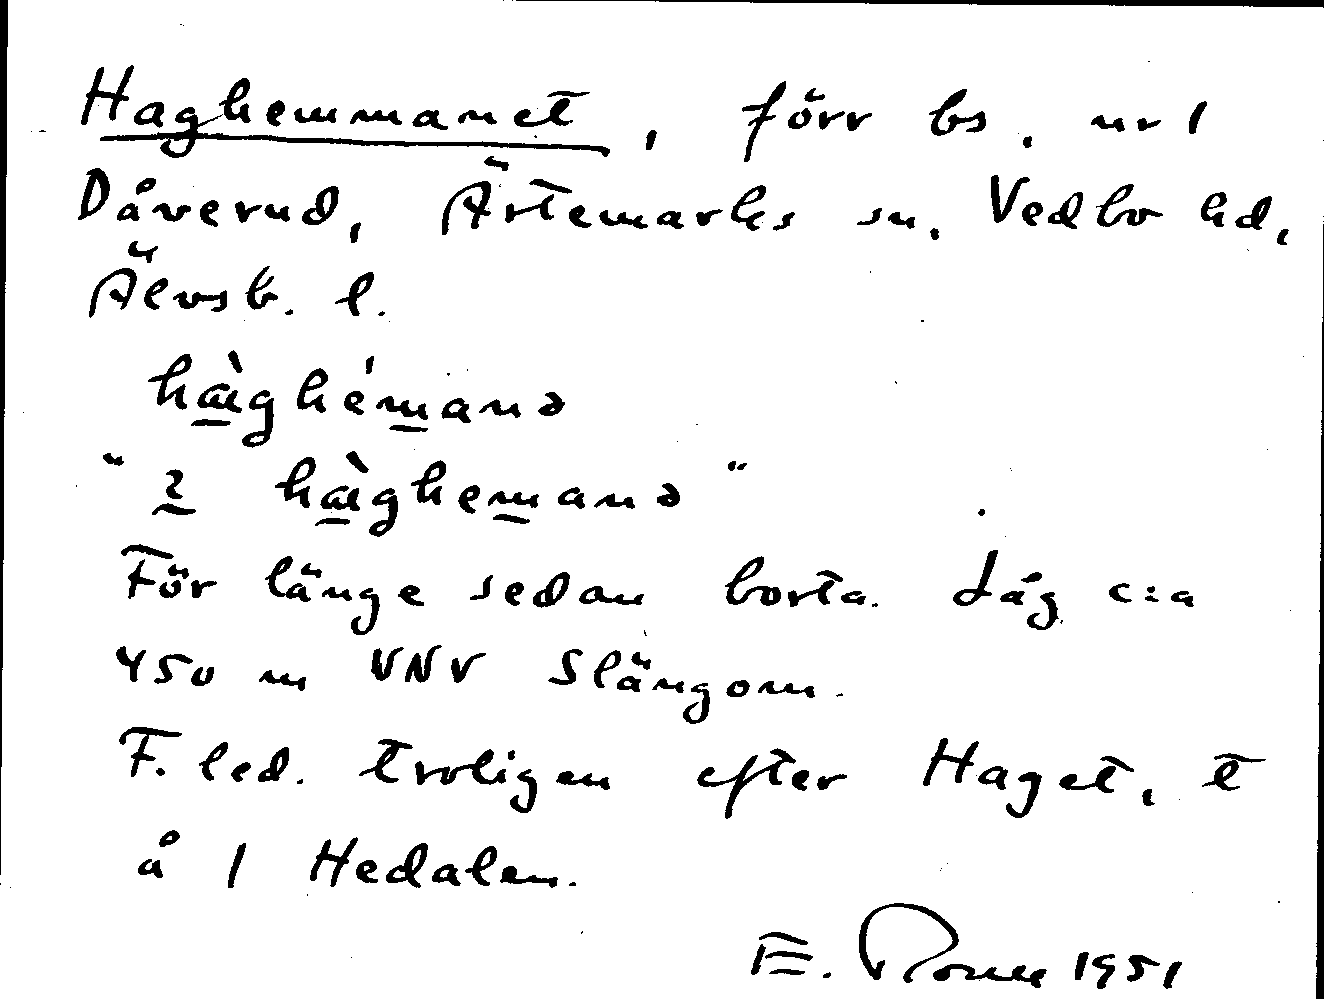 Haghemmanet, förr bs, nr 1
Dåverud, Ärtemarks sn, Vedbo hd,
Älvsb. l.
hæ̀ghémanə
"2 hæ̀ghemanə"
För länge sedan borta. Låg c:a
450 m VNV Slängom.
F. led. troligen efter Haget, t
å 1 Hedalen.
E. 1951